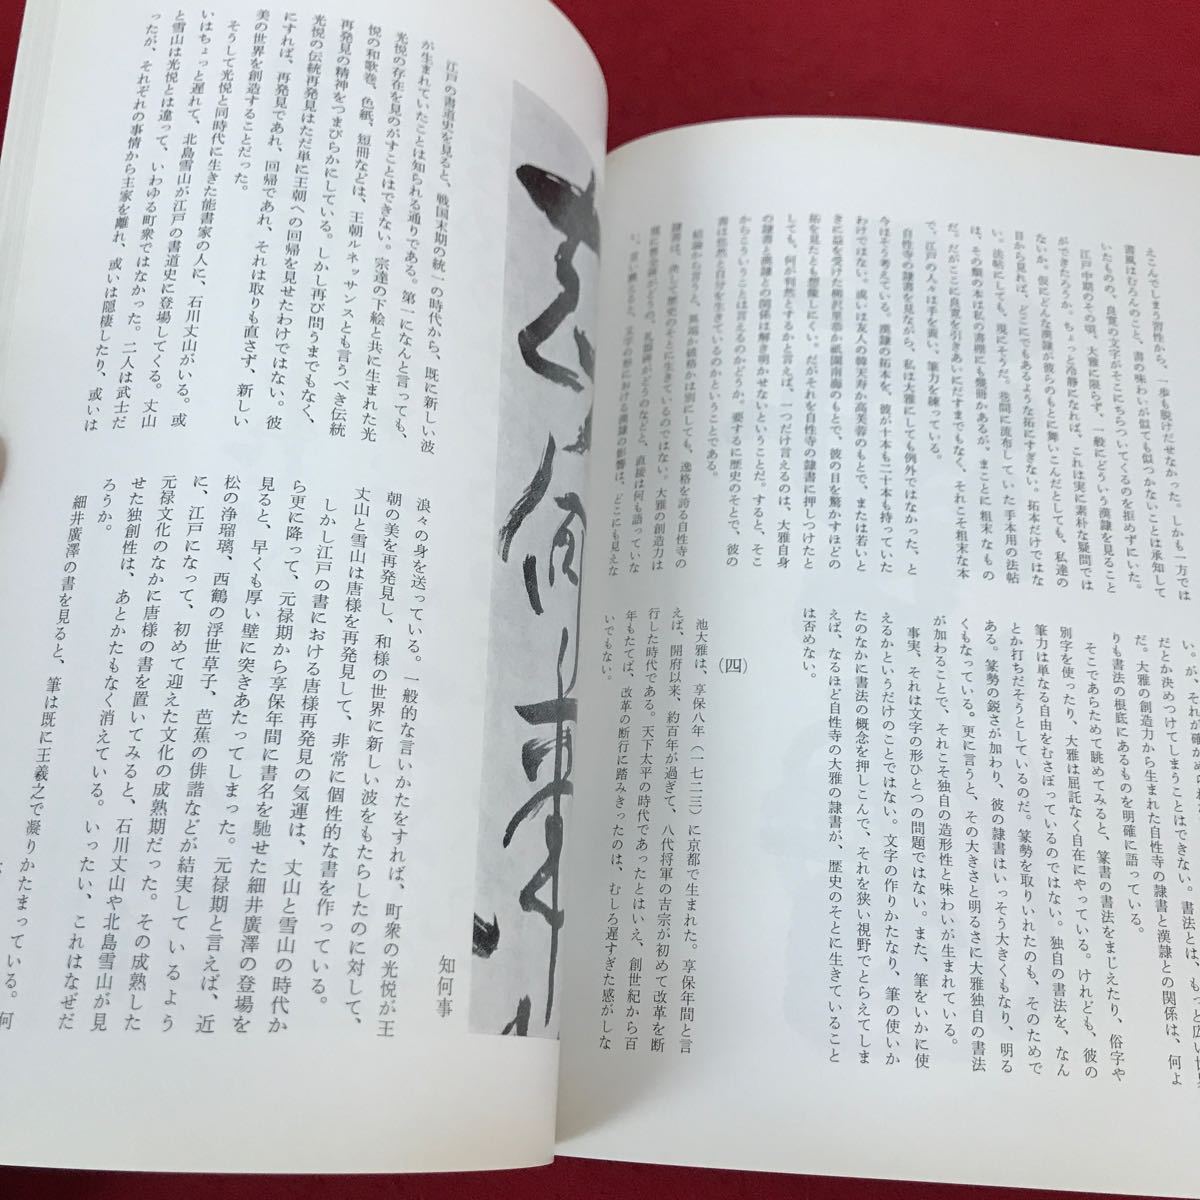 えこんでしまう習性から、一歩も脱けだせなかった。しかも一方では
書風はむろんのこと、書の味わいが似ても似つかないことは承知して
いたものの、良寛の文字がそこにちらついてくるのを拒めずにいた。
江戸中期のその頃、大雅に限らず、一般にどういう漢隷を見ること
ができたろうか。ちょっと冷静になれば、これは実に素朴な疑問では
ないか。仮にどんな漢隷が彼らのもとに舞いこんだとしても、私達の
目から見れば、どこにでもあるような拓にすぎない。拓本だけではな
い。法帖にしても、現にそうだ。巷間に流布していた手本用の法帖
は、その類の本は私の書棚にも幾冊かあるが、まことに粗末なもの
だ。だがここに良寛を引きあいにだすまでもなく、それこそ粗末な本
で、江戸の人々は手を養い、筆力を練っている。
自性寺の隷書を見ながら、私は大雅にしても例外ではなかった、と
今はそう考えている。漢隷の拓本を、彼が十本も二十本も持っていた
わけではない。或いは友人の韓天寿か高芙蓉のもとで、または若いと
きに益を受けた柳沢里恭か祇園南海のもとで、彼の目を驚かすほどの
拓を見たとも想像しにくい。だがそれを自性寺の隷書に押しつけたと
しても、何が判然とするかと言えば、一つだけ言えるのは、大雅自身
の隷書と漢隷との関係は解き明かせないということだ。すると、そこ
からこういうことは言えるのかどうか。要するに歴史のそとで、彼の
書は悠然と自分を生きているのかということである。
結論から言うと、異端か破格かは別にしても、逸格を誇る自性寺の
隷書は、決して歴史のそとに生きているのではない。大雅の創造力は
礼器碑がどうのなどと、直接は何も語っていな
い。言い換えると、文字の形における漢隷の影響は、どこにも見えな
い。が、それが確かめられ
だとか決めつけてしまうことはできない。書法とは、もっと広い世界
だ。大雅の創造力から生まれた自性寺の隷書と漢隷との関係は、何よ
りも書法の根底にあるものを明確に語っている。
そこであらためて眺めてみると、篆書の書法をまじえたり、俗字や
別字を使ったり、大雅は屈託なく自在にやっている。けれども、彼の
筆力は単なる自由をむさぼっているのではない。独自の書法を、なん
とか打ちだそうとしているのだ。篆勢を取りいれたのも、そのためで
ある。篆勢の鋭さが加わり、彼の隷書はいっそう大きくもなり、明る
くもなっている。更に言うと、その大きさと明るさに大雅独自の書法
が加わることで、それこそ独自の造形性と味わいが生まれている。
事実、それは文字の形ひとつの問題ではない。また、筆をいかに使
えるかというだけのことではない。文字の作りかたなり、筆の使いか
たのなかに書法の概念を押しこんで、それを狭い視野でとらえてしま
えば、なるほど自性寺の大雅の隷書が、歴史のそとに生きていること
は否めない。
(四)
池大雅は、享保八年(一七二三)に京都で生まれた。享保年間と言
えば、開府以来、約百年が過ぎて、八代将軍の吉宗が初めて改革を断
行した時代である。天下太平の時代であったとはいえ、創世紀から百
年もたてば、改革の断行に踏みきったのは、むしろ遅すぎた感がしな
いでもない。
知何事
江戸の書道史を見ると、戦国末期の統一の時代から、既に新しい波
が生まれていたことは知られる通りである。第一になんと言っても、
光悦の存在を見のがすことはできない。宗達の下絵と共に生まれた光
悦の和歌巻、色紙、短冊などは、王朝ルネッサンスとも言うべき伝統
再発見の精神をつまびらかにしている。しかし再び問うまでもなく、
光悦の伝統再発見はただ単に王朝への回帰を見せたわけではない。彼
にすれば、再発見であれ、回帰であれ、それは取りも直さず、新しい
美の世界を創造することだった。
そうして光悦と同時代に生きた能書家の人に、石川丈山がいる。或
いはちょっと遅れて、北島雪山が江戸の書道史に登場してくる。丈山
と雪山は光悦とは違って、いわゆる町衆ではなかった。二人は武士だ
ったが、それぞれの事情から主家を離れ、或いは隠棲したり、或いは
知何事
浪々の身を送っている。一般的な言いかたをすれば、町衆の光悦が王
朝の美を再発見し、和様の世界に新しい波をもたらしたのに対して、
丈山と雪山は唐様を再発見して、非常に個性的な書を作っている。
しかし江戸の書における唐様再発見の気運は、丈山と雪山の時代か
ら更に降って、元禄期から享保年間に書名を馳せた細井廣澤の登場を
見ると、早くも厚い壁に突きあたってしまった。元禄期と言えば、近
松の浄瑠璃、西鶴の浮世草子、芭蕉の俳諧などが結実しているよう
に、江戸になって、初めて迎えた文化の成熟期だった。その成熟した
元禄文化のなかに唐様の書を置いてみると、石川丈山や北島雪山が見
せた独創性は、あとかたもなく消えている。いったい、これはなぜだ
ろうか。
細井廣澤の書を見ると、筆は既に王羲之で凝りかたまっている。何